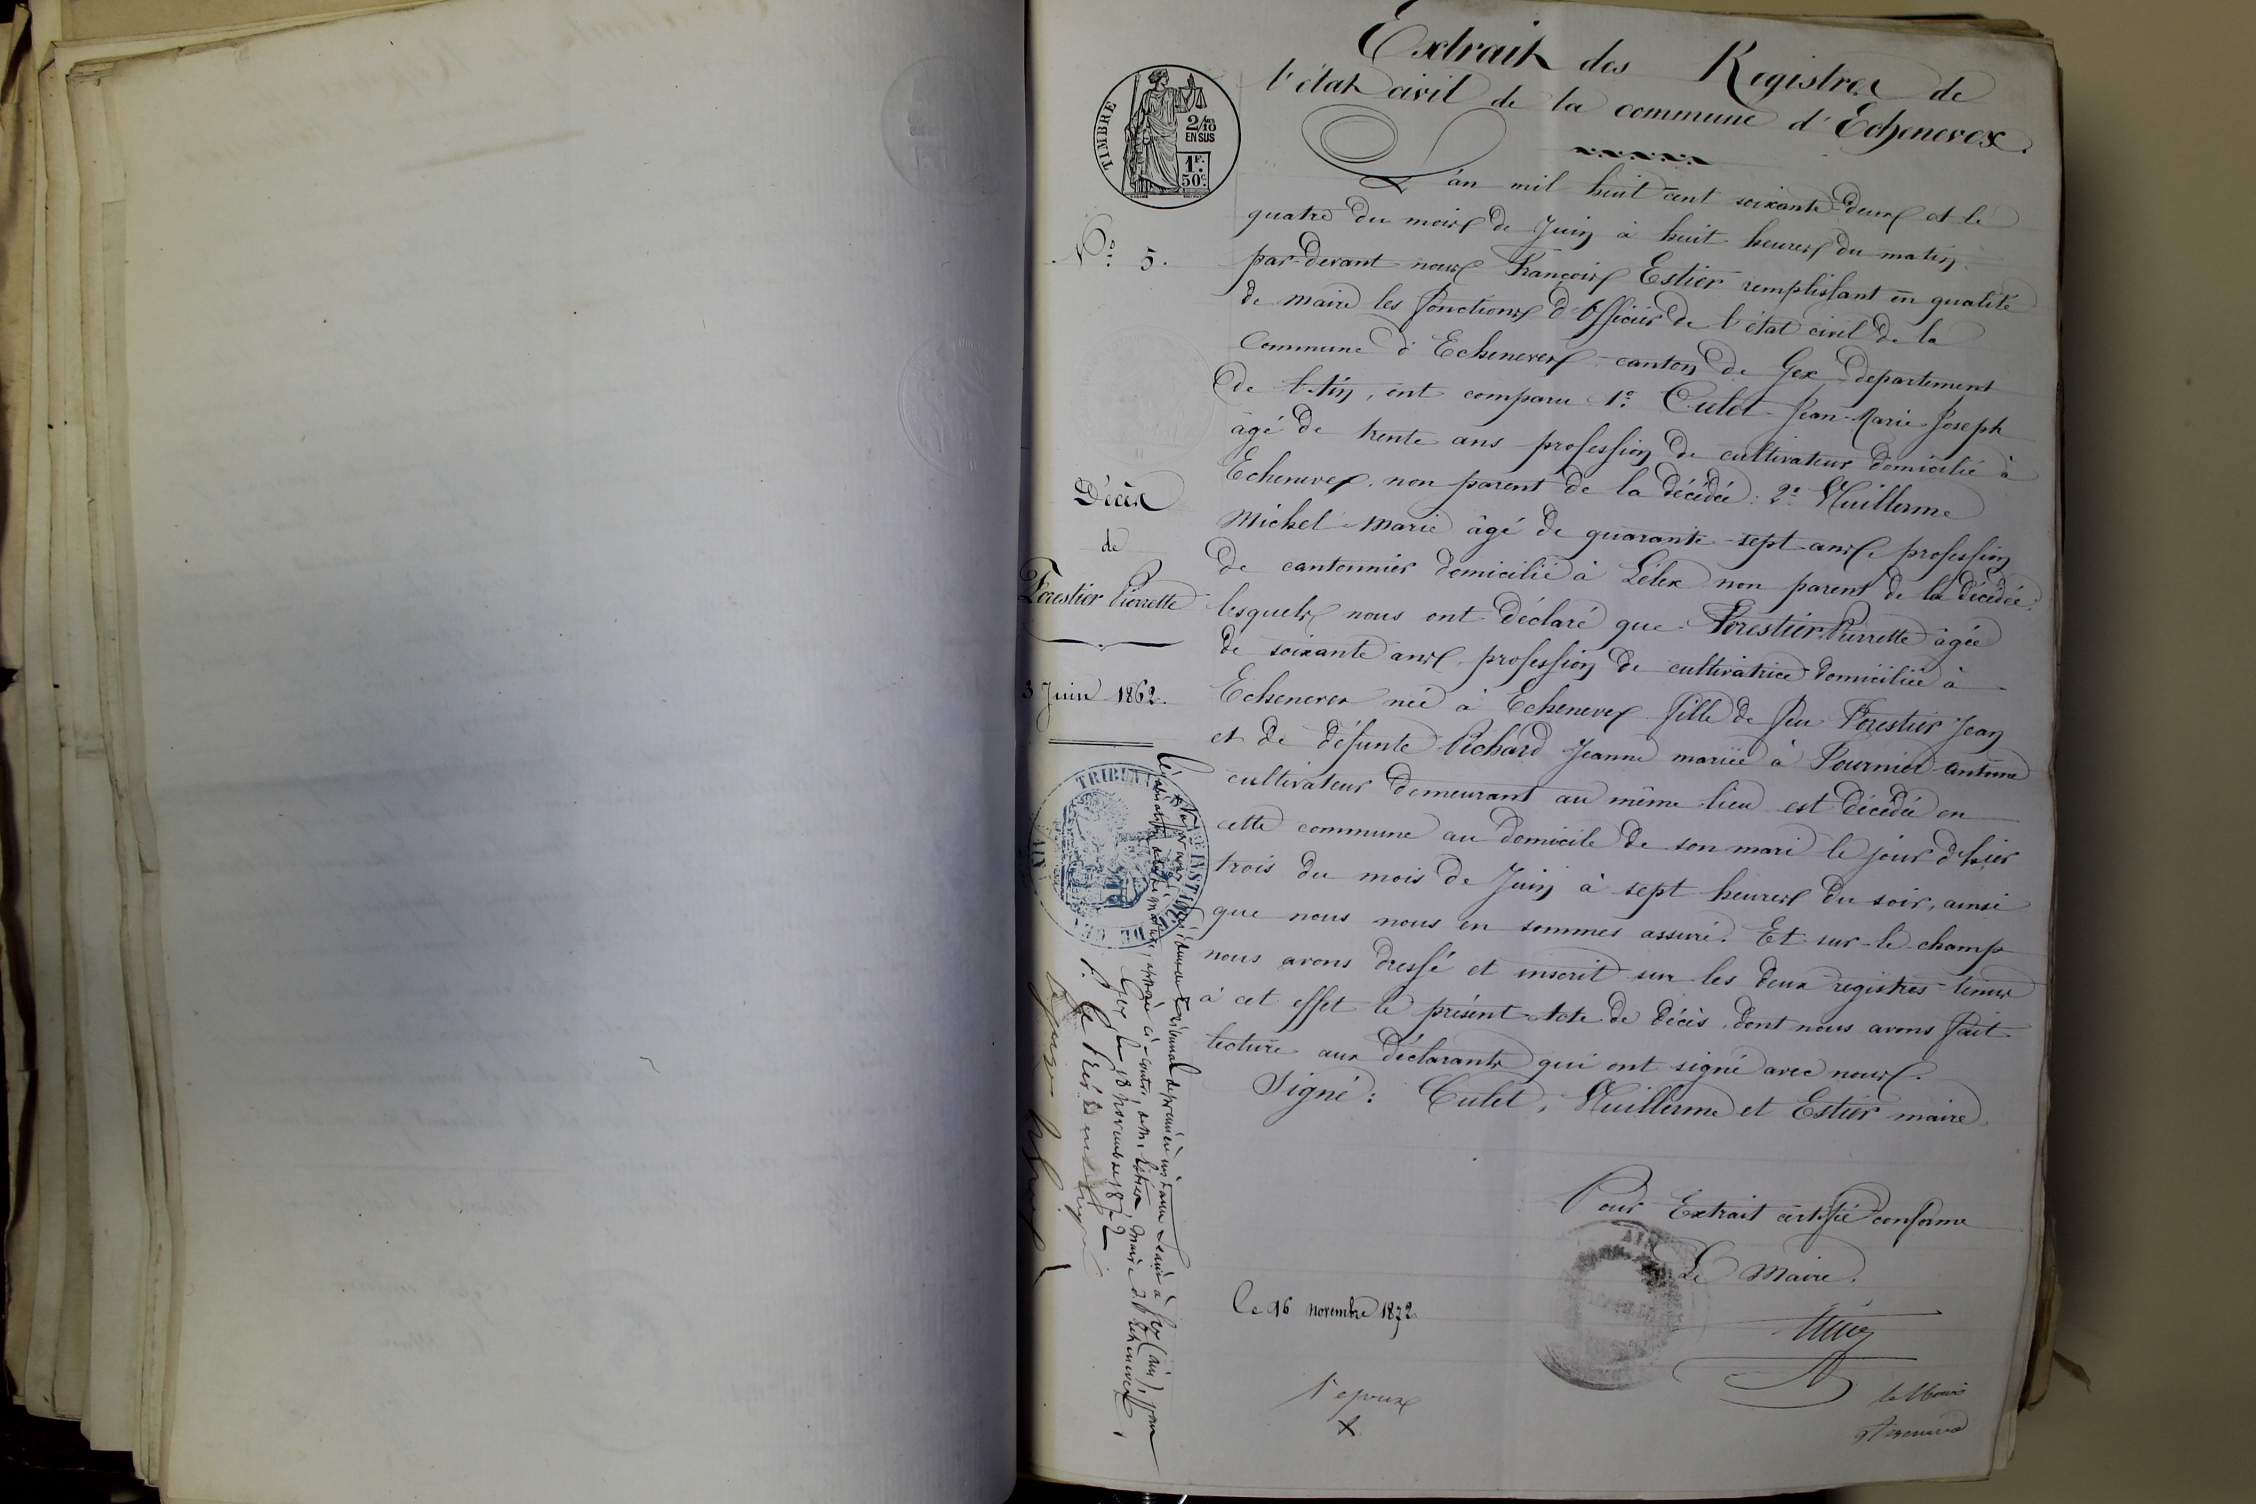 Extrait des Registres de
l'état civil de la commune d'Echenevex.
TIMBRE
2/10
EN SUS
1F.
50c.
L'an mil huit cent soixante deux et le
quatre du mois de Juin à huit heures du matin
No. 5.
par-devant nous François Estier remplissant en qualité
de maire les fonctions d'Officier de l'état civil de la
Commune d'Echenevex canton de Gex departement
de l'Ain, ont comparu 1o. Culet Jean-Marie Joseph
âgé de trente ans profession de cultivateur domicilié à
Echenevex. non parent de la décédée: 2o. Vuillerme
Michel-Marie âgé de quarante-sept-ans profession
de cantonnier domicilié à Lélex non parent de la décédée.
lesquels nous ont déclaré que Forestier Pierrette âgée
de soixante ans, profession de cultivatrice domiciliée à
Echenevex née à Echenevex fille de feu Forestier Jean
et de défunte Pichard Jeanne mariée à Fournier antoine
cultivateur demeurant au même lieu est décédée en
cette commune au domicile de son mari le jour d'hier
trois du mois de Juin à sept heures du soir, ainsi
que nous nous en sommes assuré. Et sur-le-champ
nous avons dressé et inscrit sur les deux registres tenus
à cet effet le présent Acte de décès, dont nous avons fait
lecture aux déclarants qui ont signé avec nous.
Signé: Culet, Vuillerme et Estier maire.
Décès
de
Forestier Pierrette
3 Juin 1862.
TRIBUNAL DE 1RE INSTANCE
DE GEX
AIN
tribunal de première instance séant à Gex (ain), pour
légalisation de la signature, apposée ci-contre, de M. Estier maire d'Echenevex,
Gex le 18 novembre 1872
P. le Président empêché
Pour Extrait certifié conforme
Le Maire.
AIN
Le 16 novembre 1872
l'epoux
X